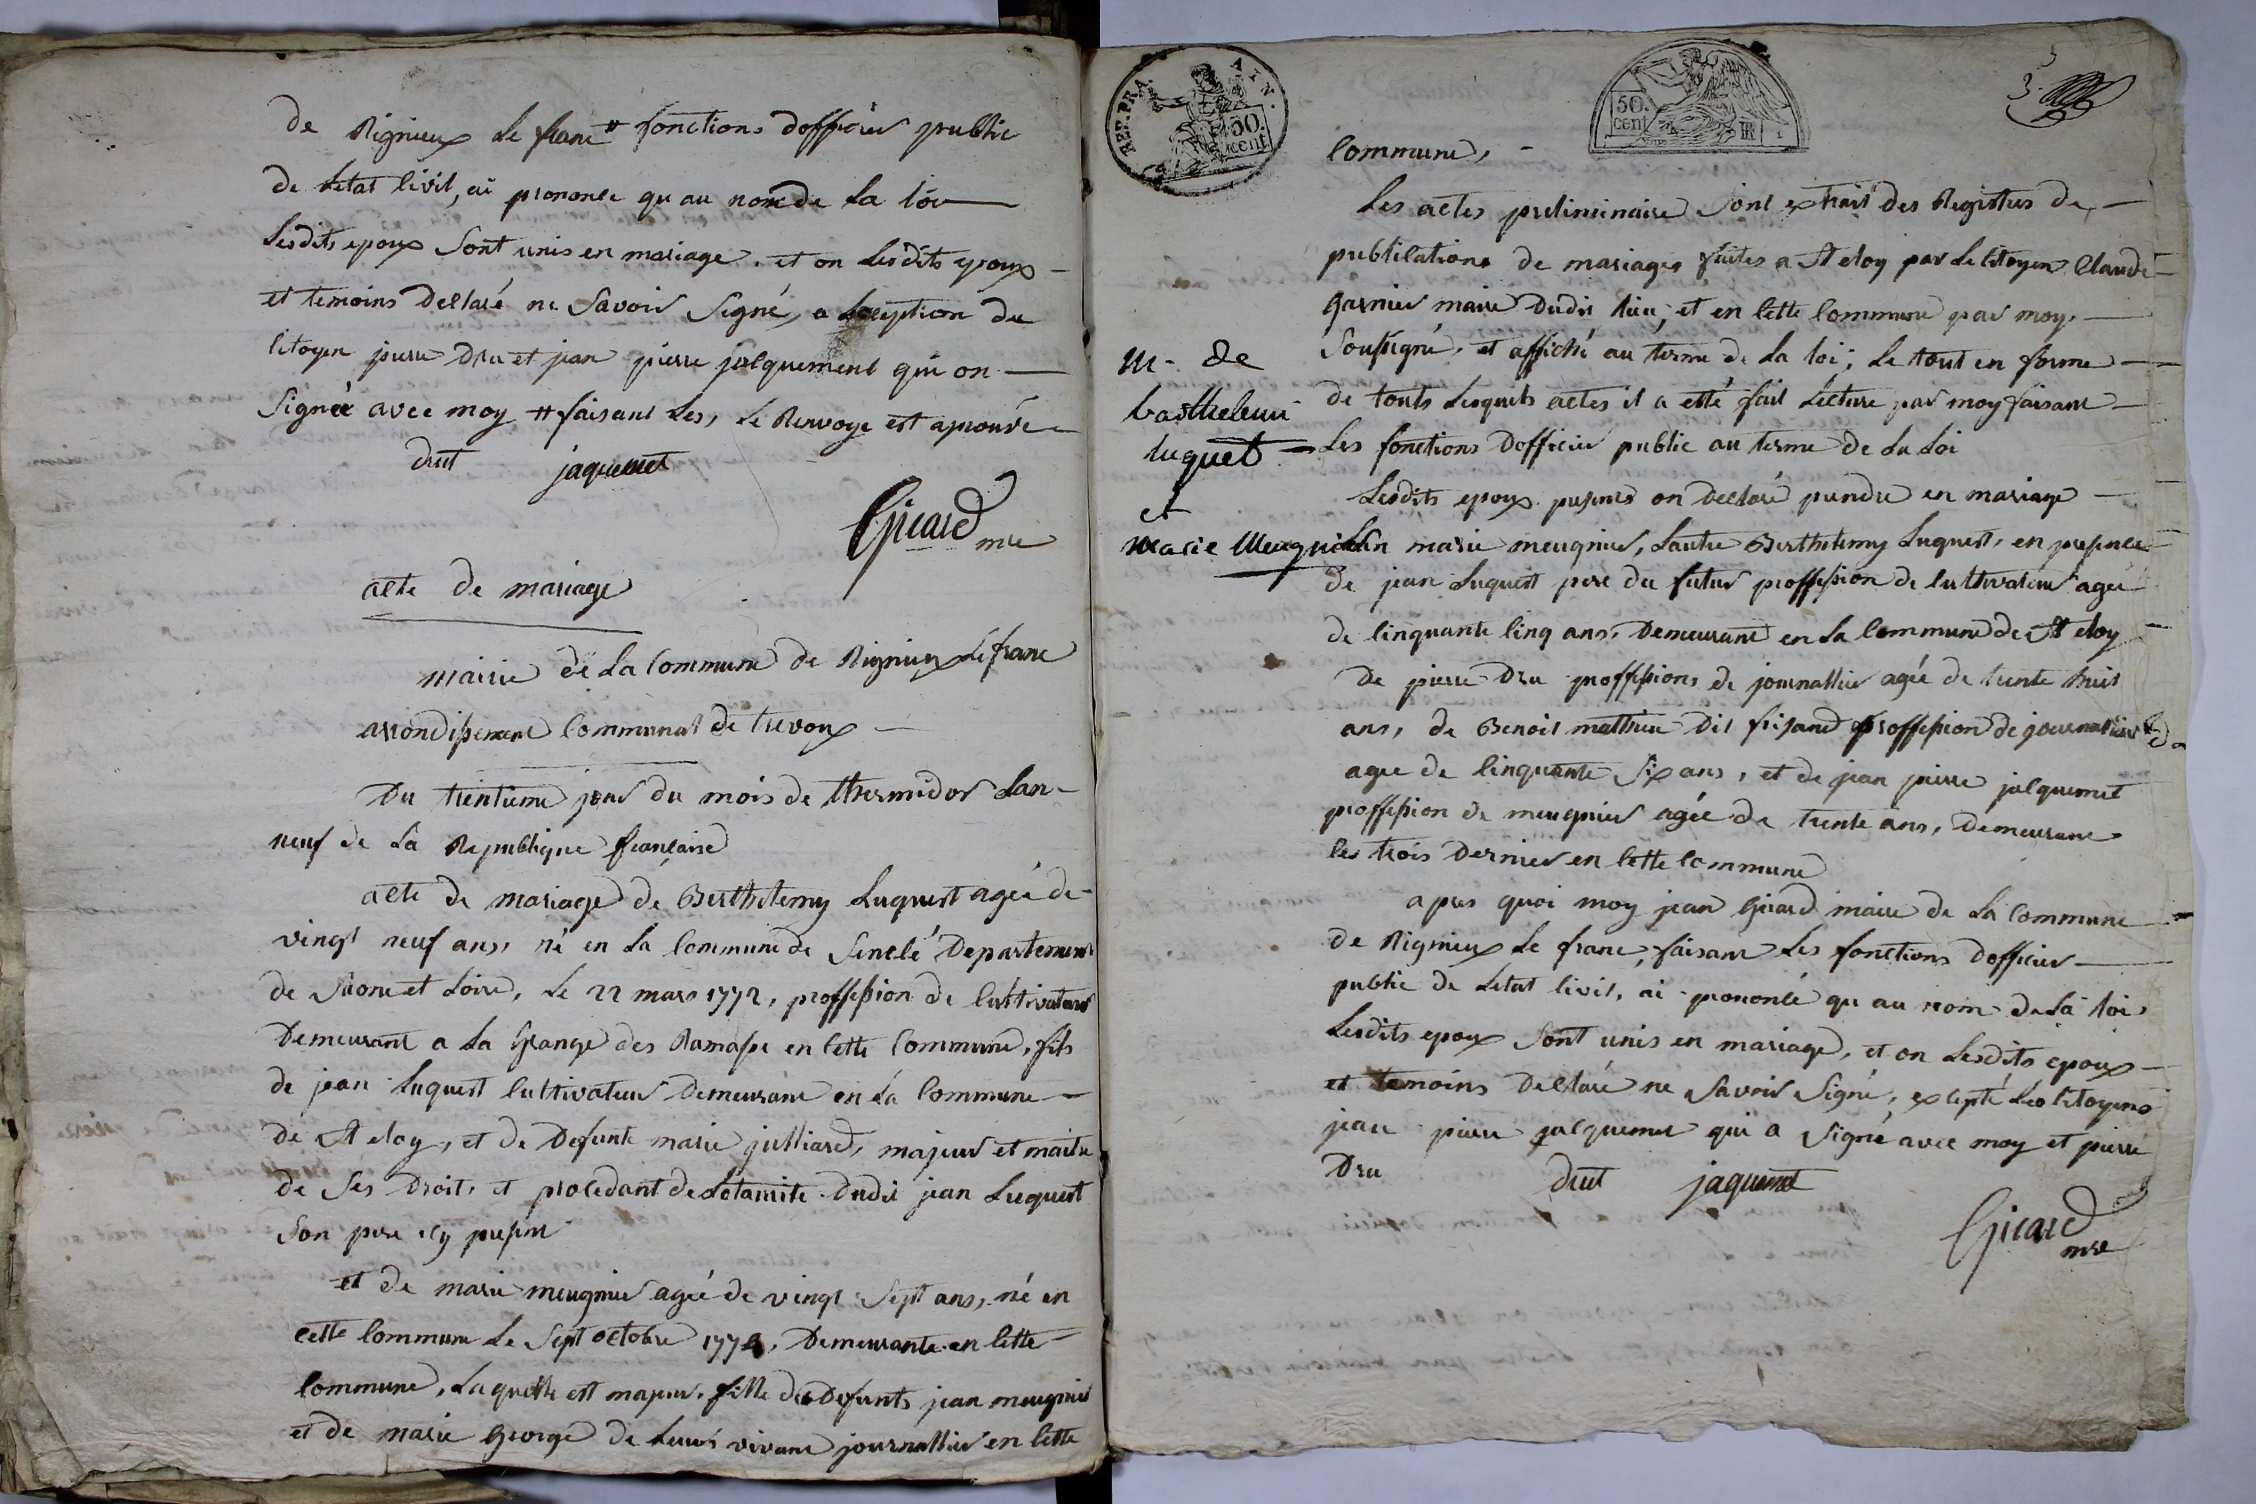 de Rignieux le franc # fonctions dofficier public
de letat civil, ai prononcé qu au nom de la loi
lesdits epoux sont unis en mariage. et on lesdits epoux
et temoins declaré ne savoir signé, a lexeption du
citoyen pierre dru et jean pierre jalquemend qui on
signée avec moy # faisant les, le renvoye est aprouvé
drut jaquemet
Girard mre
acte de mariage
mairie de la commune de Rignieux le franc
arrondissement communal de trevoux
Du trentieme jour du mois de thermidor lan
neuf de la Republique française
acte de mariage de Berthelemy Luquest agée de
vingt neuf ans, né en la commune de Senclé departement
de Saone et loire, le 22 mars 1772, proffession de cultivateur
demeurant a la Grange des Ramasse en cette commune, fils
de jean luquest cultivateur demeurant en la commune
de St eloy, et de defunte marie julliard, majeur et maitre
de ses droit, et procedant de lotaurite dudit jean Luquest
son pere icy present
et de marie meugnier agée de vingt sept ans, né en
cette commune le sept octobre 1774, demeurante en cette
commune, laquelle est majeur, fille des defunts jean meugnier
et de marie George de leurs vivant journallier en cette
REP. FRA. AIN.
50. cent.
50. cent.
3.
commune,
Les actes preliminaire sont extrait des Registres de
publications de mariages faites a St eloy par le citoyen Claude
Garnier maire dudit lieu, et en cette commune par moy
soussigné, et affiché au terme de la loi; le tout en forme
de touts lesquels actes il a etté fait lecture par moy faisant
les fonctions dofficier public au terme de la loi
m. de
barthelemi
luquet
et
marie Meugnier
Lesdits epoux presents on declaré prendre en mariage
lun marie meugnier, lautre Berthelemy Luquest, en presence
de jean luquest pere du futur proffession de cultivateur agée
de cinquante cinq ans, demeurant en la commune de St eloy
de pierre dru proffessions de journallier agée de trente huit
ans, de Benoit mathieu dit frisand proffession de journallier
agee de cinquante six ans, et de jean pierre jalquemet
proffession de meugnier agée de trente ans, demeurant
les trois dernier en cette commune
apres quoi moy jean Girard maire de la commune
de Rignieux le franc, faisant les fonctions dofficier
public de letat civil, ai prononcé qu au nom de la loi,
lesdits epoux sont unis en mariage, et on lesdits epoux
et temoins declaré ne savoir signé, excepté les citoyens
jean pierre jalquemet qui a signé avec moy et pierre
dru drut jaquemet
Girard
mre